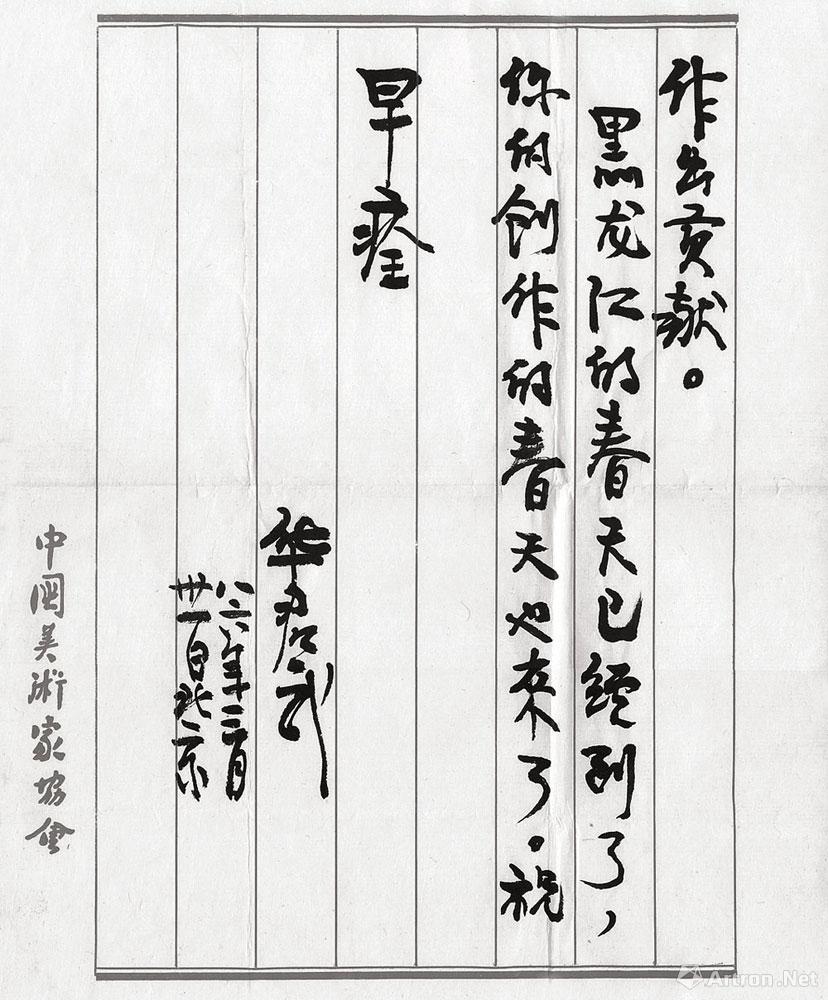 作出贡献。
黑龙江的春天已经到了，
你的创作的春天也来了。祝
早痊
华君武
八六年三月
卅一日北京
中国美術家协会
Artron.Net